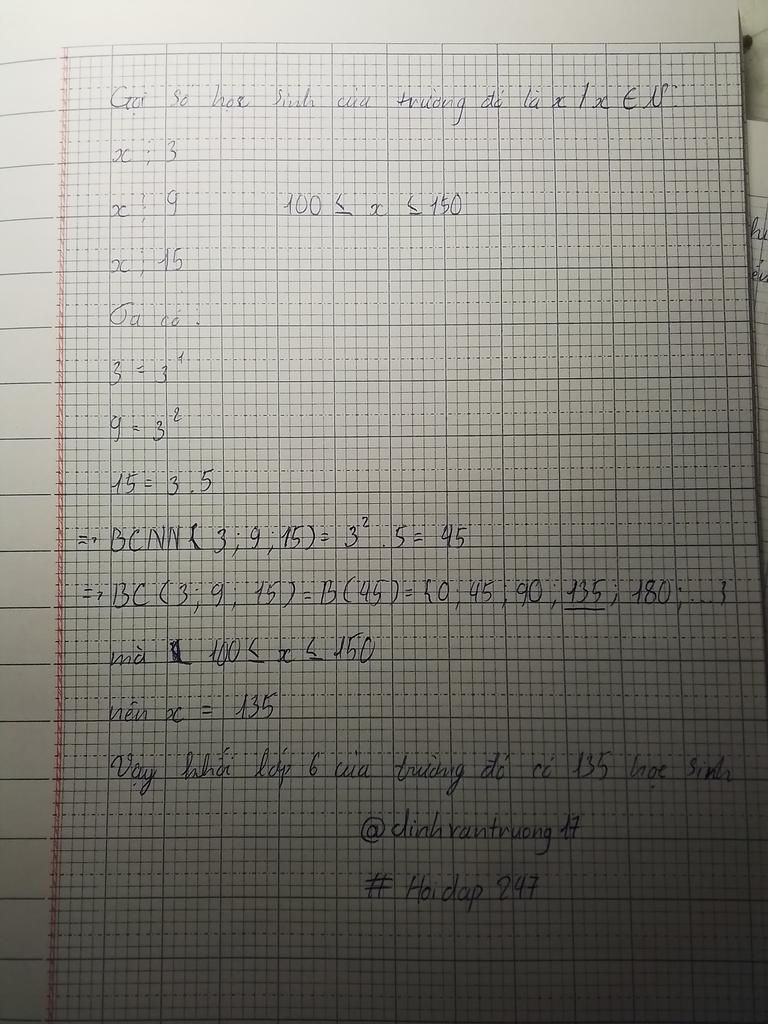 Gọi số học sinh của trường đó là x / x ∈ N*
x ⋮ 3
x ⋮ 9 100 ≤ x ≤ 150
x ⋮ 15
Ta có:
3 = 3¹
9 = 3²
15 = 3.5
=> BCNN( 3; 9; 15) = 3².5 = 45
=> BC (3; 9; 15) = B(45) = {0; 45; 90; 135; 180; ...}
mà 100 ≤ x ≤ 150
nên x = 135
Vậy khối lớp 6 của trường đó có 135 học sinh
@dinhvantruong17
# Hoidap 247